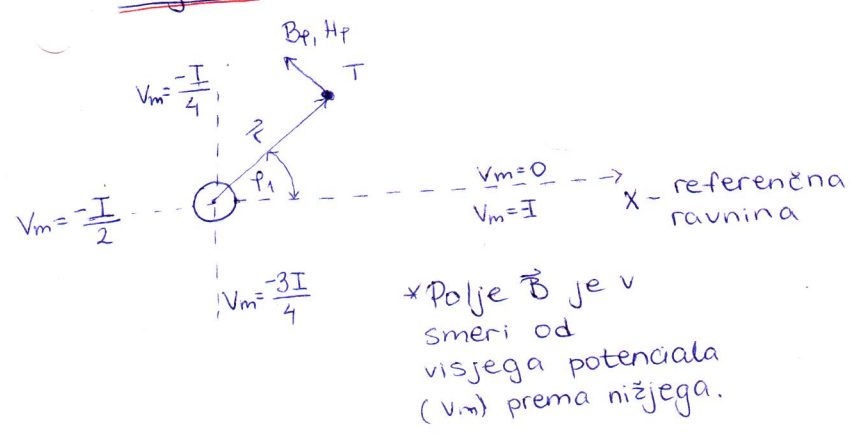 Bφ, Hφ
T
Vm = -I/4
r⃗
φ1
Vm=0
Vm=-I
X - referenčna
ravnina
Vm = -I/2
Vm = -3I/4
*Polje B⃗ je v
smeri od
visjega potenciala
(Vm) prema nižjega.